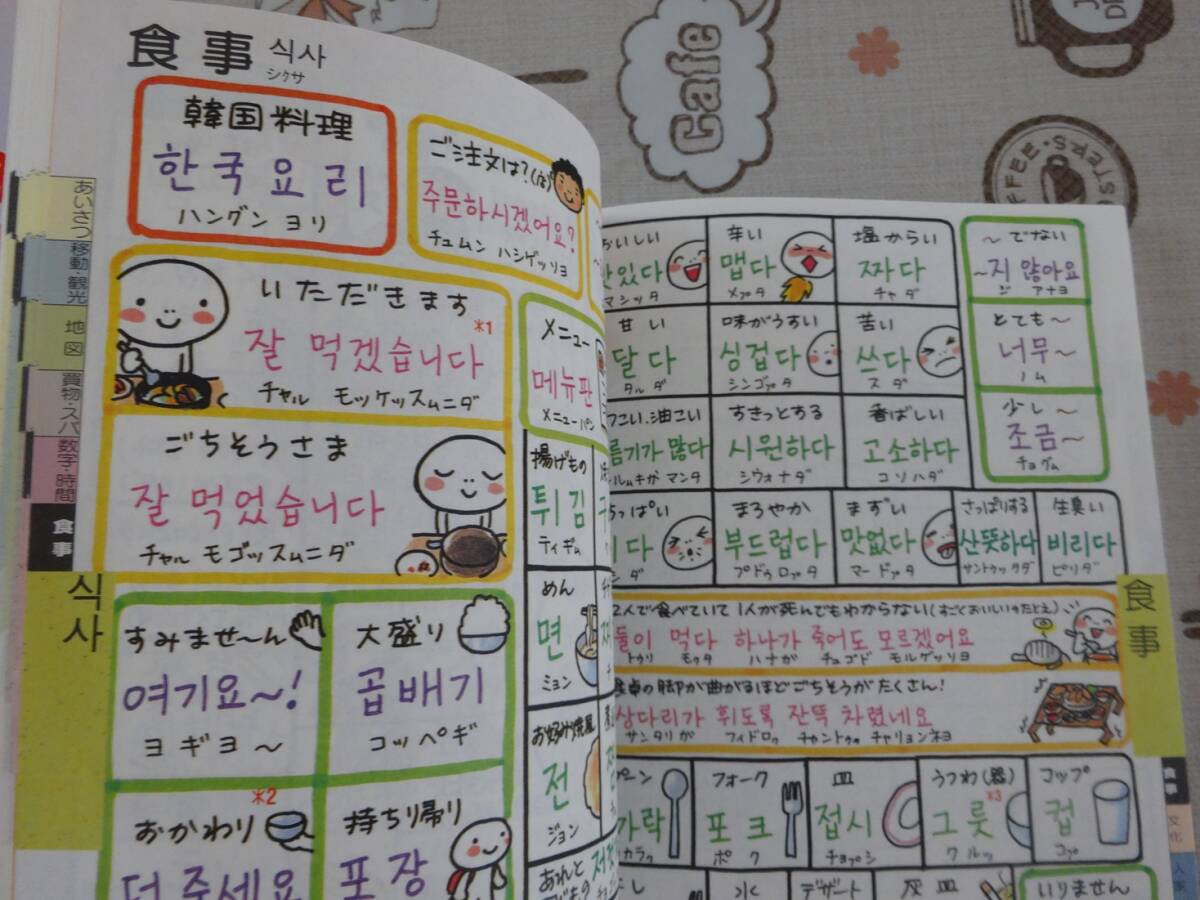 食事 식사
シクサ
韓国料理
한국요리
ハングン ヨリ
ご注文は?(店)
주문하시겠어요?
チュムン ハシゲッソヨ
いただきます
잘 먹겠습니다 *1
チャル モッケッスムニダ
ごちそうさま
잘 먹었습니다
チャル モゴッスムニダ
すみませ〜ん
여기요~!
ヨギヨ〜
大盛り
곱배기
コッペギ
おかわり *2
더 주세요
持ち帰り
포장
メニュー
메뉴판
メニューパン
揚げもの
튀김
ティギム
めん
면
ミョン
お好み焼風
전
ジョン
あいさつ
移動・観光
地図
買物・スパ
数字・時間
食事
식사
おいしい
맛있다
マシッタ
辛い
맵다
メプタ
塩からい
짜다
チャダ
〜でない
~지 않아요
ジ アナヨ
甘い
달다
タルダ
味がうすい
싱겁다
シンゴプタ
苦い
쓰다
スダ
とても〜
너무~
ノム
름기가 많다
ルムキが マンタ
すきっとする
시원하다
シウォナダ
香ばしい
고소하다
コソハダ
少し〜
조금~
チョグム
っぱい
다
ンダ
まろやか
부드럽다
プドゥロプタ
まずい
맛없다
マードプタ
さっぱりする
산뜻하다
サントゥックダ
生臭い
비리다
ピリダ
2人で食べていて1人が死んでもわからない(すごくおいしいのたとえ)
둘이 먹다 하나가 죽어도 모르겠어요
トゥリ モクタ ハナが チュゴド モルゲッソヨ
食卓の脚が曲がるほどごちそうがたくさん!
상다리가 휘도록 잔뜩 차렸네요
サンタリが フィドロゥ チャントゥゥ チャリョンネヨ
プーン
가락
カラク
フォーク
포크
ポク
皿
접시
チョプシ
うつわ(器)
그릇 *3
クルッ
コップ
컵
コプ
水
デザート
灰皿
いりません
食事
文化
人
Cafe
COFFEE